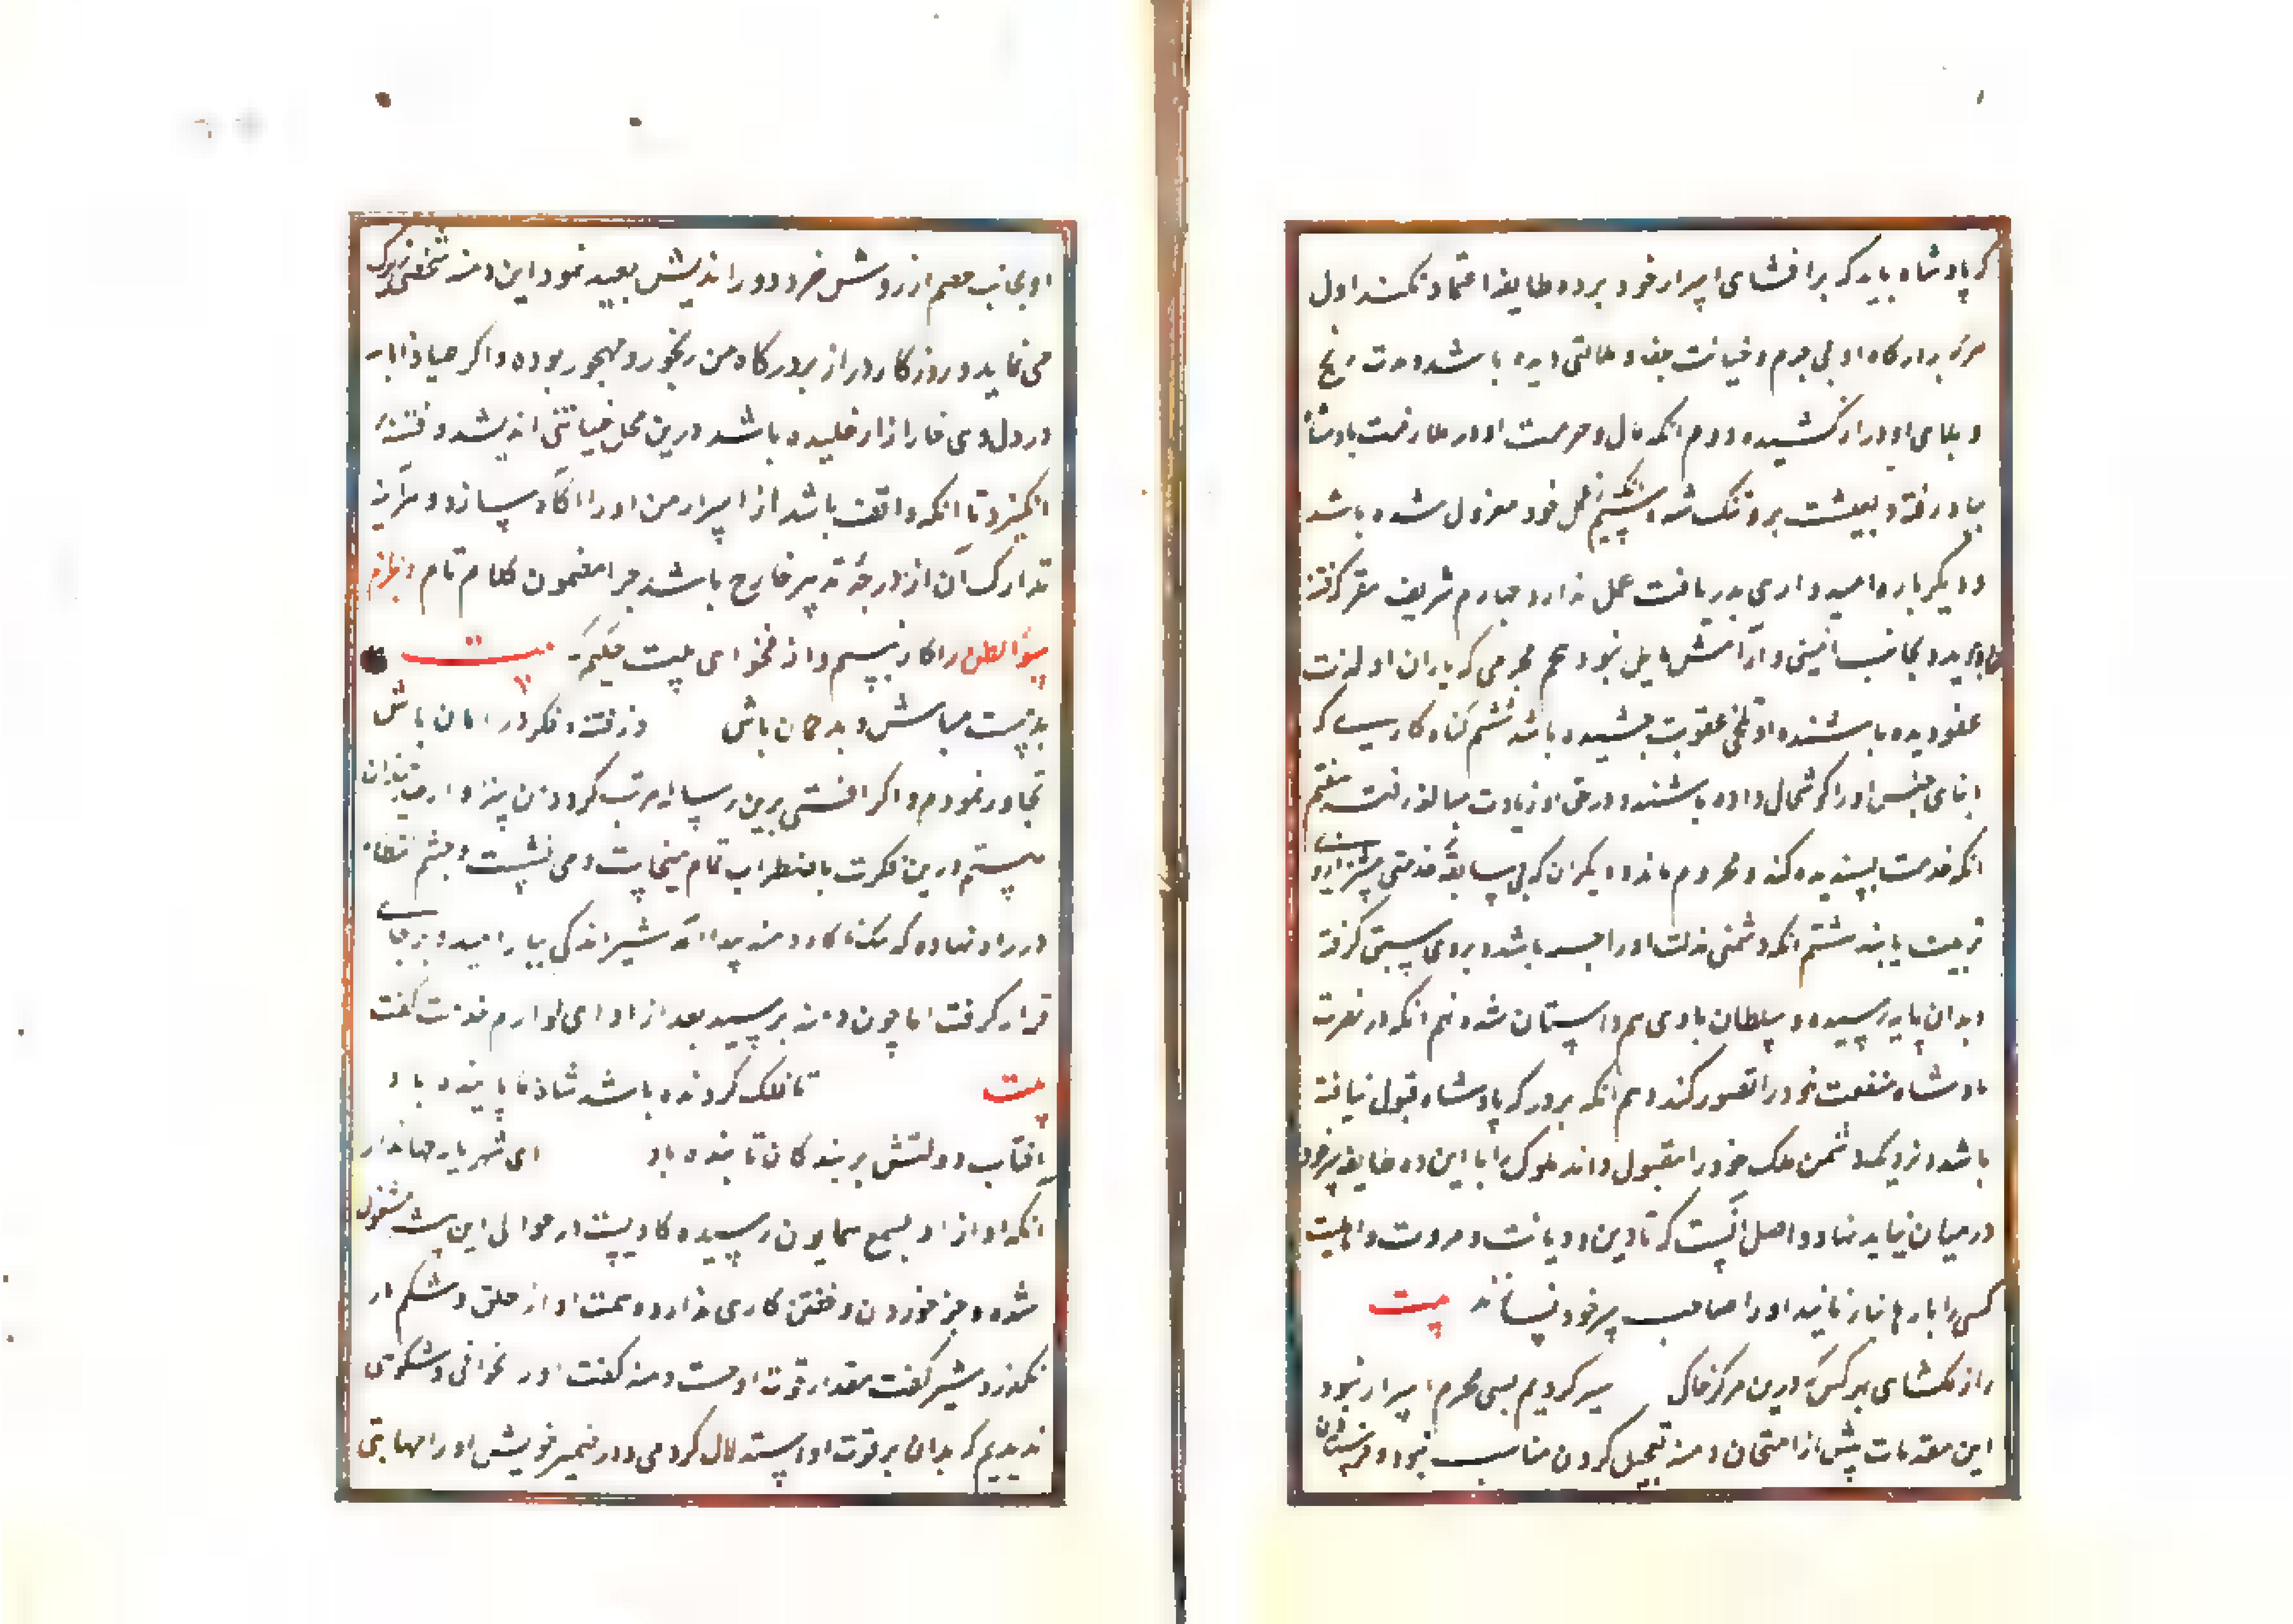 که پادشاه باید که بر افشای اسرار خود بر ده طایفه اعتماد نکند اول
هرکه بدرگاه او بی جرم و خیانت جفا و ملالتی دیده باشد و مدت رنج
و بلای او دراز کشیده دوم انکه مال و حرمت او در ملازمت پادشاه
بباد رفته و معیشت برو تنک شده سیم انکه از عمل خود معزول شده باشد
و دیکر باره امیدواری بدریافت عمل ندارد چهارم شریر
بجانب ایمنی و ارامش مایل نبود پنجم مجرمی که یاران او لذت
عفو دیده باشند و او تلخی عقوبت چشیده باشد ششم کناه کاریـ که
ابنای جنس او را کوشمال داده باشند و در حق او زیادت مبالغه رفته هفتم
انکه خدمت پسندیده کند و محروم ماند و دیکران که بی سابقه خدمتی بیشتر از وی
تربیت یابند هشتم انکه دشمنی منزلت او را جسته باشد و بروی سبقت کرفته
و بدان پایه رسیده و سلطان با وی هم داستان شده نهم انکه در مضرت
پادشاه منفعت خود را تصور کند دهم انکه بر درکه پادشاه قبول نیافته
باشد و نزدیک دشمن ملک خود را مقبول داند ملوک را با این ده طایفه سر خود
در میان نباید نهاد و اصل انست که تا دین و دیانت و مروت و اهلیت
کسی را بارها نیازمایند او را صاحب سر خود نسازند بیت
راز مکشای بهر کس که درین مرکز خاک سیر کردیم بسی محرم اسرار نبود
این مقدمات پیش از امتحان دمنه تعجیل کردن مناسب نبود و فرستادن
او بجانب خصم از روش خرد و دوراندیشی بعید نمود این دمنه شخصی زیرک
می نماید و روزکار دراز بر درکاه من رنجور و مهجور بوده و اکر عیاذا بالله
در دل وی خار ازار خلیده باشد درین محل خیانتی اندیشد و فتنه
انکیزد تا انکه واقف باشد از اسرار من او را اکاه سازد و هراینه
تدارک آن از درجه تدبیر خارج باشد چرا مضمون کلام تمام و الحزم
سوء الظن را کار نبستم و از فحوای بیت حکیم که بیت
بدنیت مباش و بد کمان باش وز فتنه و مکر در امان باش
تجاوز نمودم و اکر افتی برین رسالت مرتب کردد من سزاوار
هستم درین فکرت باضطراب تمام میخاست و می نشست و چشم انتظار
در راه نهاده که ناکاه دمنه پیدا امد شیر اندکی بیارامید و بر جای
قرار کرفت اما چون دمنه برسید بعد از ادای لوازم خدمت کفت
بیت تا فلک کردنده باشد شاه ما پاینده باد
افتاب دولتش بر بندکان تابنده باد ای شهریار جهاندار
انکه اواز او بسمع همایون رسیده کاویست در حوالی این بیشه مشغول
شده و جز خوردن و خفتن کاری ندارد و همت او از حلق و شکم در
نکذرد شیر کفت مقدار قوت او چیست دمنه کفت او را نخوانی و شکوهی
ندیدیم که بدان بر قوت او استدلال کردمی و در ضمیر خویش او را مهابتی